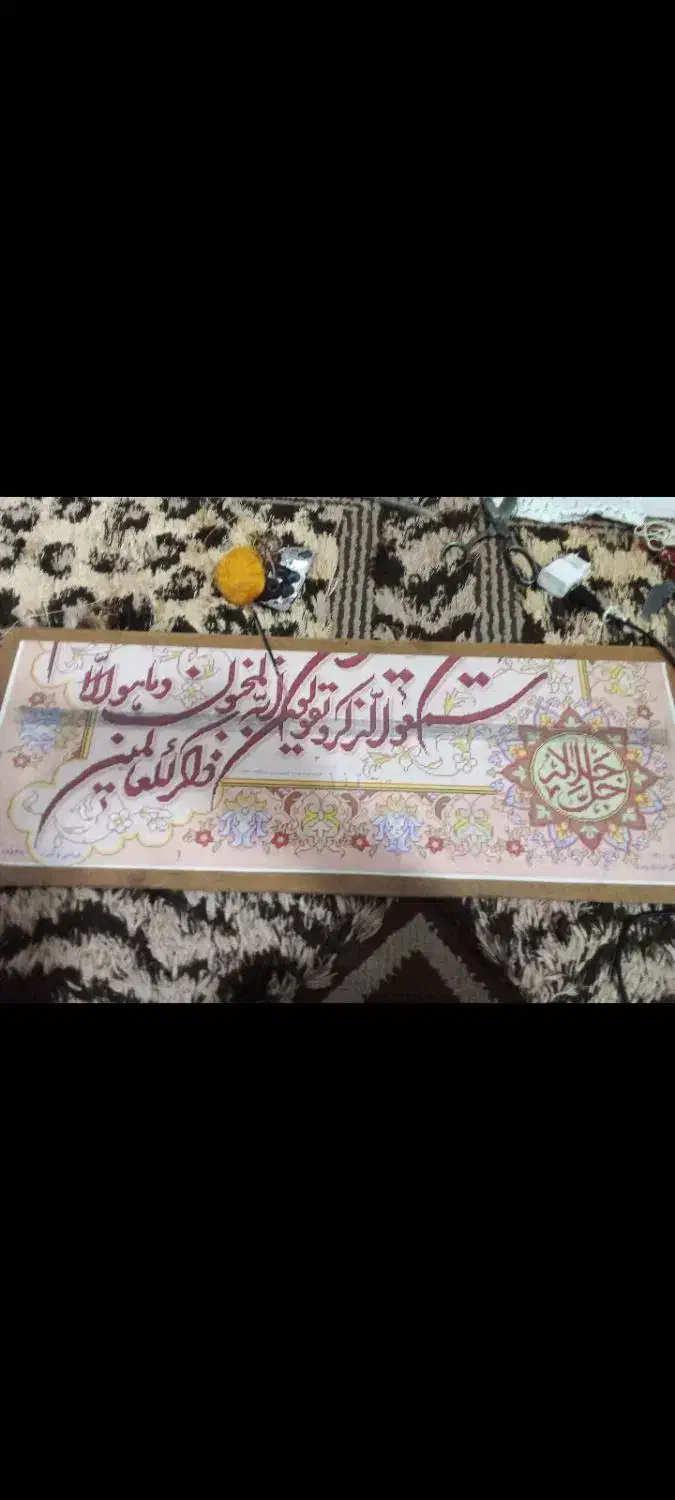 سمعوا الذكر و يقولون انه لمجنون و ما هو الّا
ذكر للعالمين
جل جلاله